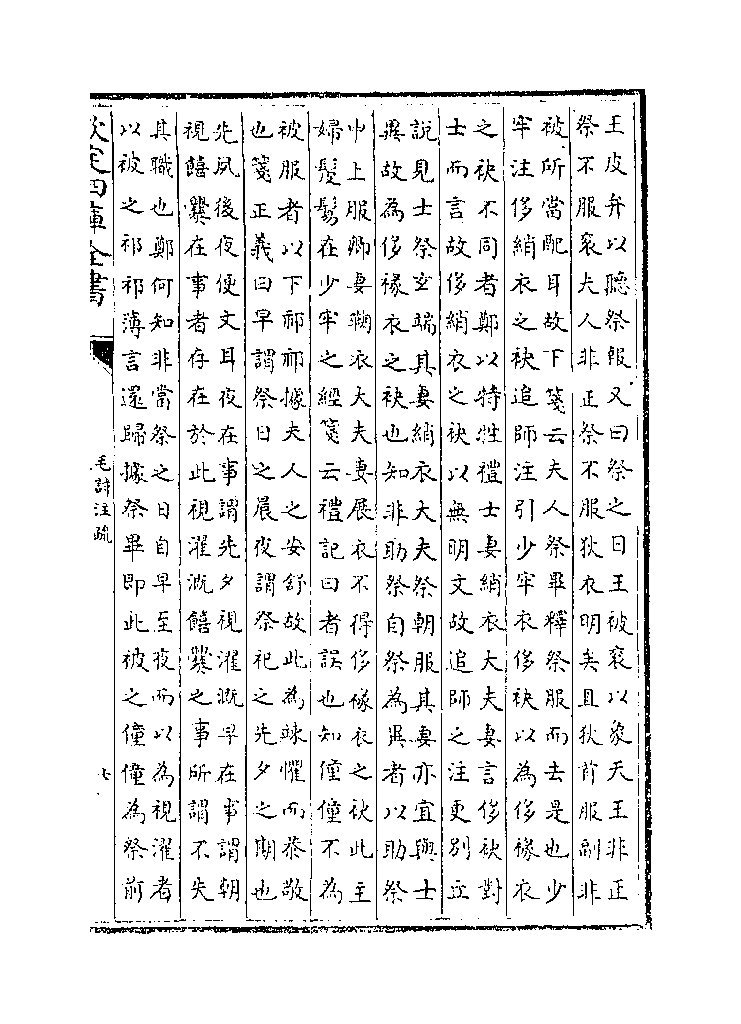 王皮弁以聽祭報又曰祭之日王被衮以象天王非正
祭不服衮夫人非正祭不服狄衣明矣且狄首服副非
被所當配耳故下箋云夫人祭畢釋祭服而去是也少
牢注侈綃衣之袂追師注引少牢衣侈袂以為侈褖衣
之袂不同者鄭以特牲禮士妻綃衣大夫妻言侈袂對
士而言故侈綃衣之袂以無明文故追師之注更别立
説見士祭玄端其妻綃衣大夫祭朝服其妻亦宜與士
異故為侈褖衣之袂也知非助祭自祭為異者以助祭
申上服卿妻鞠衣大夫妻展衣不得侈褖衣之袂此主
婦髲鬄在少牢之經箋云禮記曰者誤也知僮僮不為
被服者以下祁祁據夫人之安舒故此為竦懼而恭敬
也箋正義曰早謂祭日之晨夜謂祭祀之先夕之期也
先夙後夜便文耳夜在事謂先夕視濯溉早在事謂朝
視饎爨在事者存在於此視濯溉饎爨之事所謂不失
其職也鄭何知非當祭之日自早至夜而以為視濯者
以被之祁祁薄言還歸據祭畢即此被之僮僮為祭前
欽定四庫全書
毛詩注疏
七